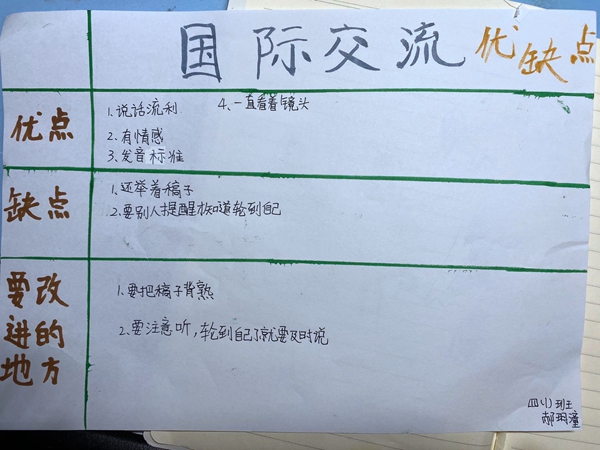 国际交流优缺点
优点
1.说话流利
4、一直看着镜头
2.有情感
3、发音标准
缺点
1.还举着稿子
2.要别人提醒才知道轮到自己
要改
进的
地方
1.要把稿子背熟
2.要注意听,轮到自己了就要及时说
四(1)班
郝玥潼